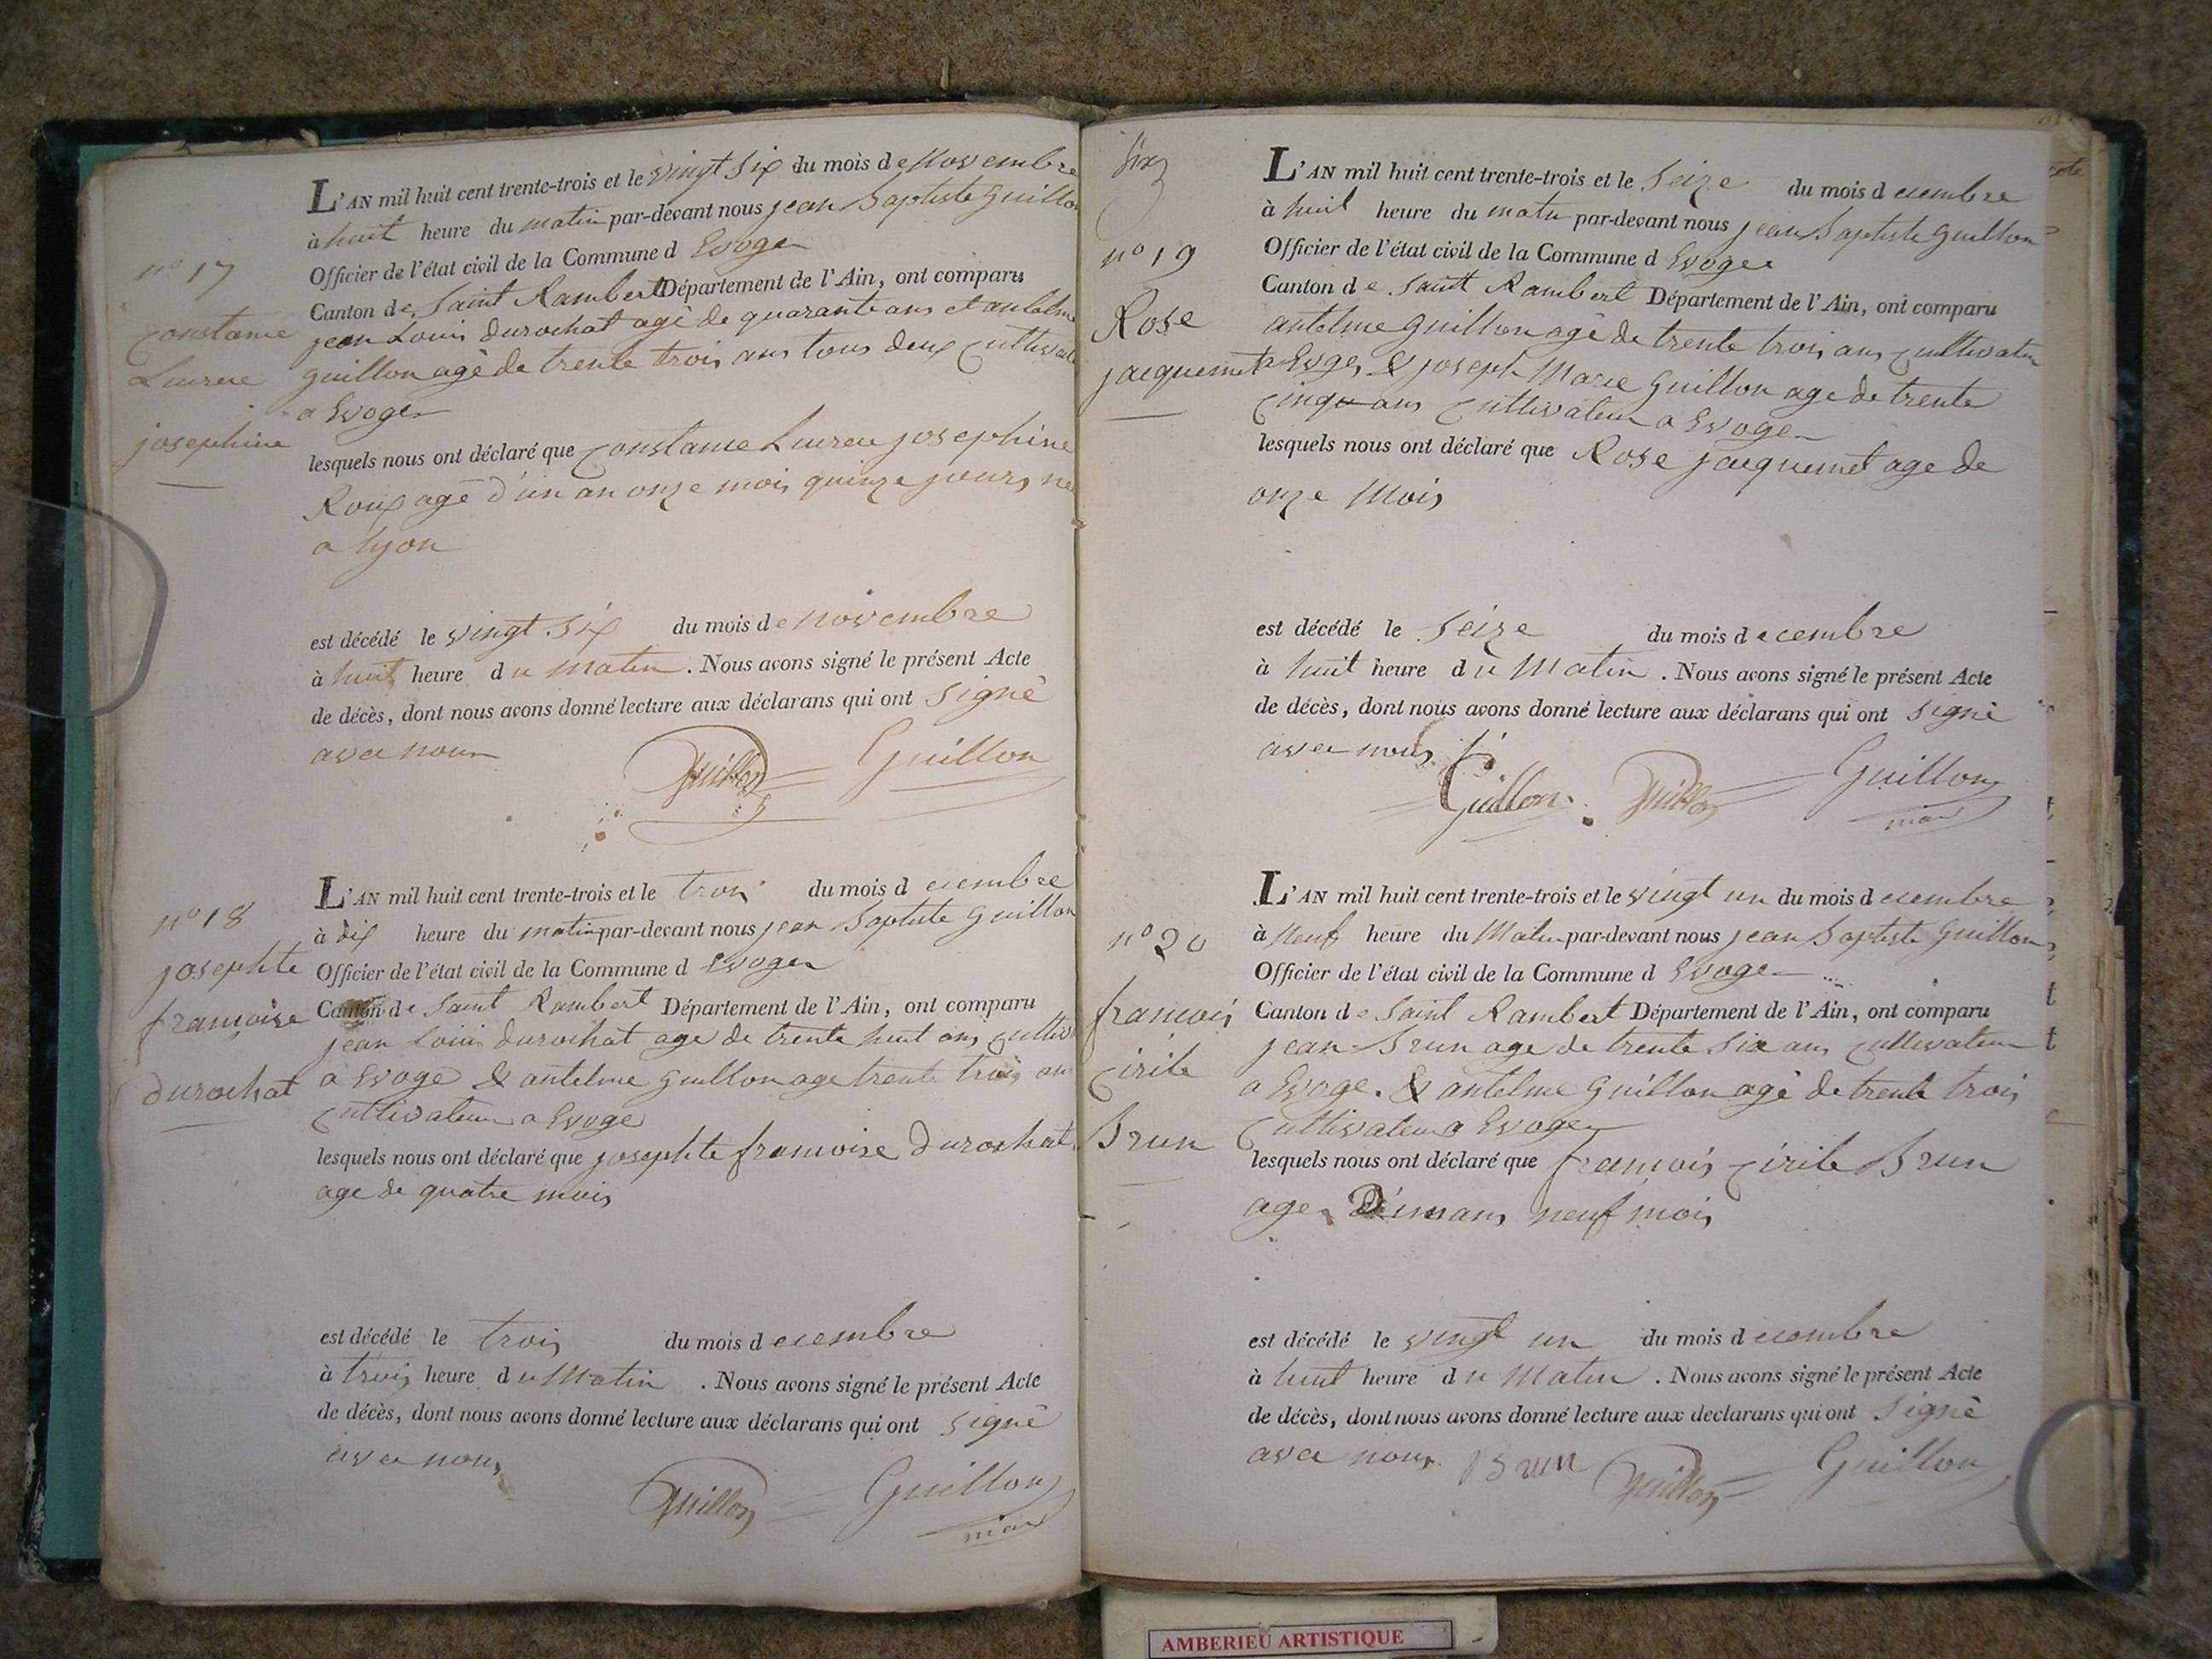 L'AN mil huit cent trente-trois et le vingt six du mois de Novembre
à huit heure du matin par-devant nous jean Baptiste Guillon
Officier de l'état civil de la Commune d Evoges
Canton de Saint Rambert Département de l'Ain, ont comparu
jean Louis Durochat agè de quarante ans et antelme
guillon agè de trente trois ans tous deux
a Evoges
lesquels nous ont déclaré que josephine
Roux agé d'un an onze mois quinze jours né
a lyon
n° 17
josephine
est décédé le vingt six du mois de novembre
à huit heure du matin. Nous avons signé le présent Acte
de décès, dont nous avons donné lecture aux déclarans qui ont signè
avec nous
Guillon Guillon
L'AN mil huit cent trente-trois et le trois du mois d ecembre
à dix heure du matin par-devant nous jean Baptiste Guillon
Officier de l'état civil de la Commune d Evoges
Canton de Saint Rambert Département de l'Ain, ont comparu
jean Louis durochat age de trente huit ans cultiv
a Evoge & antelme guillon age trente trois an
cultivateur a Evoge
lesquels nous ont déclaré que josephte francoise Durochat
age de quatre mois
n° 18
josephte
françoise
durochat
est décédé le trois du mois d ecembre
à trois heure du Matin. Nous avons signé le présent Acte
de décès, dont nous avons donné lecture aux déclarans qui ont signè
avec nous
Guillon Guillon
L'AN mil huit cent trente-trois et le Seize du mois d ecembre
à huit heure du matin par-devant nous jean Baptiste Guillon
Officier de l'état civil de la Commune d Evoges
Canton de Saint Rambert Département de l'Ain, ont comparu
antelme guillon agè de trente trois ans cultivateur
a Evoges & joseph Marie Guillon age de trente
cinq ans cultivateur a Evoges
lesquels nous ont déclaré que Rose jacquemet age de
onze Mois
Six
n° 19
Rose
jacquemet
est décédé le Seize du mois d ecembre
à huit heure du Matin. Nous avons signé le présent Acte
de décès, dont nous avons donné lecture aux déclarans qui ont signè
avec nous
Guillon Guillon Guillon
L'AN mil huit cent trente-trois et le vingt un du mois d ecembre
à Neuf heure du Matin par-devant nous jean Baptiste Guillon
Officier de l'état civil de la Commune d Evoges
Canton de Saint Rambert Département de l'Ain, ont comparu
jean Brun age de trente Six ans cultivateur
a Evoge. & antelme Guillon agè de trente trois
cultivateur a Evoges
lesquels nous ont déclaré que françois cirile Brun
age neuf mois
n° 20
francois
cirile
Brun
est décédé le vingt un du mois d ecembre
à huit heure du Matin. Nous avons signé le présent Acte
de décès, dont nous avons donné lecture aux declarans qui ont Signè
avec nous Brun Guillon Guillon
AMBERIEU ARTISTIQUE